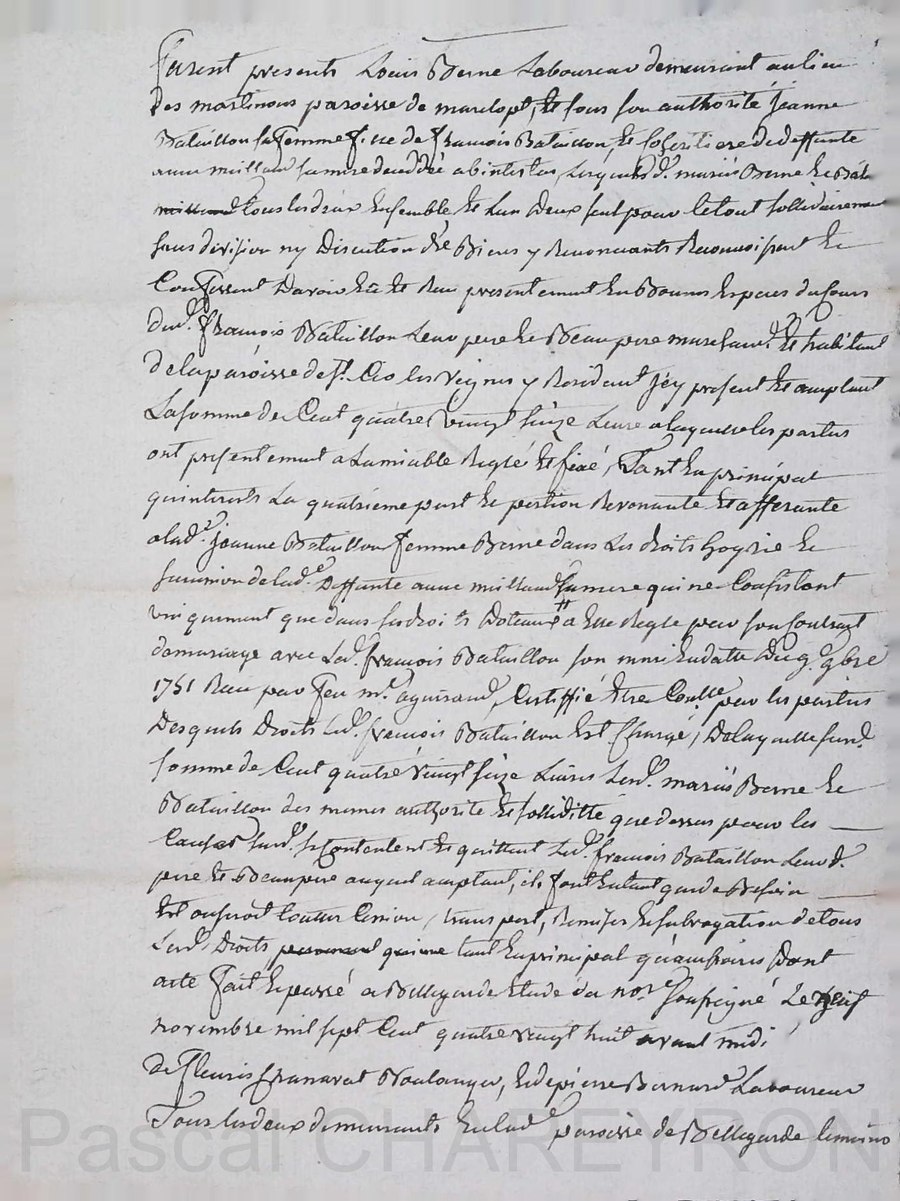 furent présents Louis Berne Laboureur demeurant au lieu
des martinous paroisse de marclopt, Et sous son authorité Jeanne
Bataillon sa femme fille de françois Bataillon, Et heritiere de deffunte
anne meilland sa mere decedée abintestas, Lesquels d. mariés Berne Et Bat.
meilland tous les deux Ensemble Et L'un d'eux seul pour le tout sollidairement
sans division ny Discution de Biens y Renonceants Reconnoissent Et
Confessent Davoir Eu Et Receu presentement En Bonnes Especes du Cours
dud. françois Bataillon Leur pere Et Beau pere marchand Et habitant
de la paroisse de st. Cir les Vignes y Residant Icy present Et acceptant
La somme de Cent quatre Vingt seize Livres a laquelle les parties
ont presentement a Lamiable Reglé Et fixé, Tant En principal
qu'interets La quatrieme part Et portion Revenante Et afferante
a lad. Jeanne Bataillon femme Berne dans Les droits hoyrie Et
succession de lad. Deffunte anne meilland sa mere qui ne Consistent
uniquement que dans ses droits Doteaux # a Elle Reglé par son Contract
de mariage avec Led. françois Bataillon son mari En datte Du 9. 9bre
1751 Receu par feu me. aguiraud, Certiffié Etre Contllé par les parties
Desquels Droits Led. françois Bataillon Est Chargé, De laquelle susd.
somme de Cent quatre Vingt seize Livres Lesd. mariés Berne Et
Bataillon des memes authorité Et solliditté que dessus pour les
Causes susd. se Contentent Et quittent Led. françois Bataillon Leurd.
pere Et Beau pere auquel acceptant, ils font En tant que de Besoin
Est ou seroit toutte Cession, transport, Remise Et subrogation de tous
Lesd. Droits tant En principal qu'accessoires Dont
acte fait Et passé a Bellegarde Etude du nore. soussigné Le neuf
novembre mil sept Cent quatre vingt huit avant midi
de fleuris Boulanger, Et de pierre Bernard Laboureur
Tous les deux demeurants En lad. paroisse de Bellegarde temoins
Pascal CHAREYRON